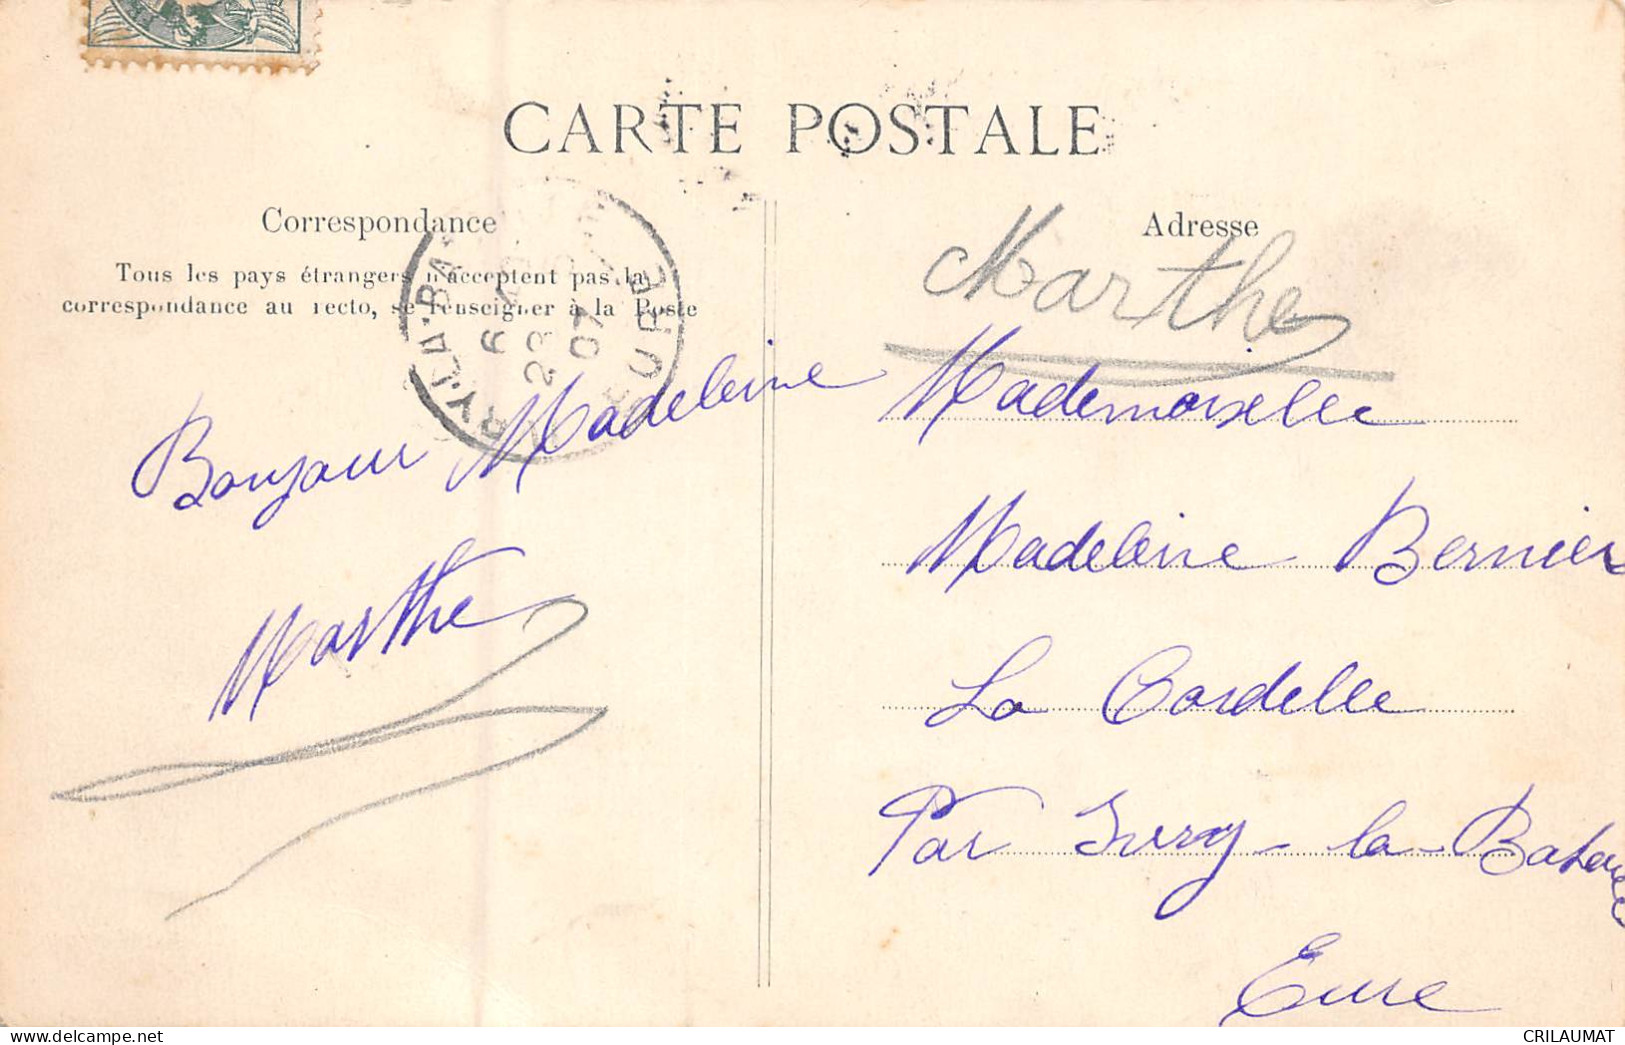 CARTE POSTALE
Correspondance
Tous les pays étrangers n'acceptent pas la
correspondance au recto, se renseigner à la Poste
Bonjour Madeleine
Marthe
Adresse
Marthe
Mademoiselle
Madeleine Bernier
La Cordelle
Par Ivry-la-Bataille
Eure
RY-LA-BA
6
23
07
EURE
CRILAUMAT